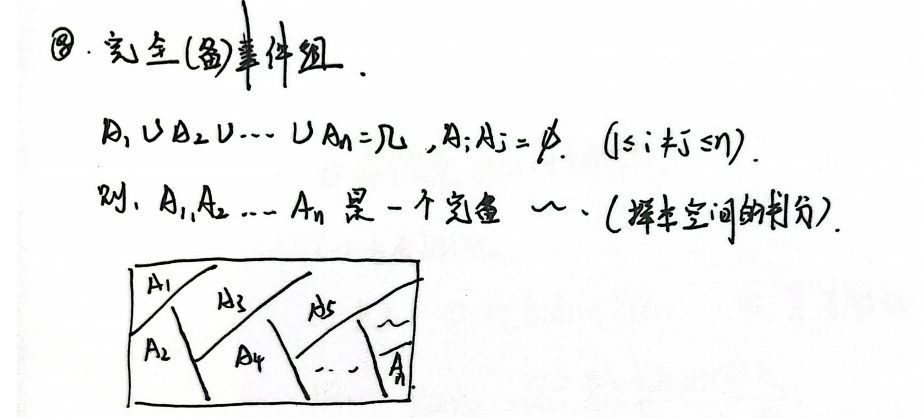 ⑧. 完全(备)事件组.
A₁∪A₂∪…∪Aₙ=Ω, AᵢAⱼ=∅. (1≤i≠j≤n).
则, A₁,A₂…Aₙ 是一个完备 ～. (样本空间的划分).
A₁ A₃ A₅ ～
A₂ A₄ … Aₙ